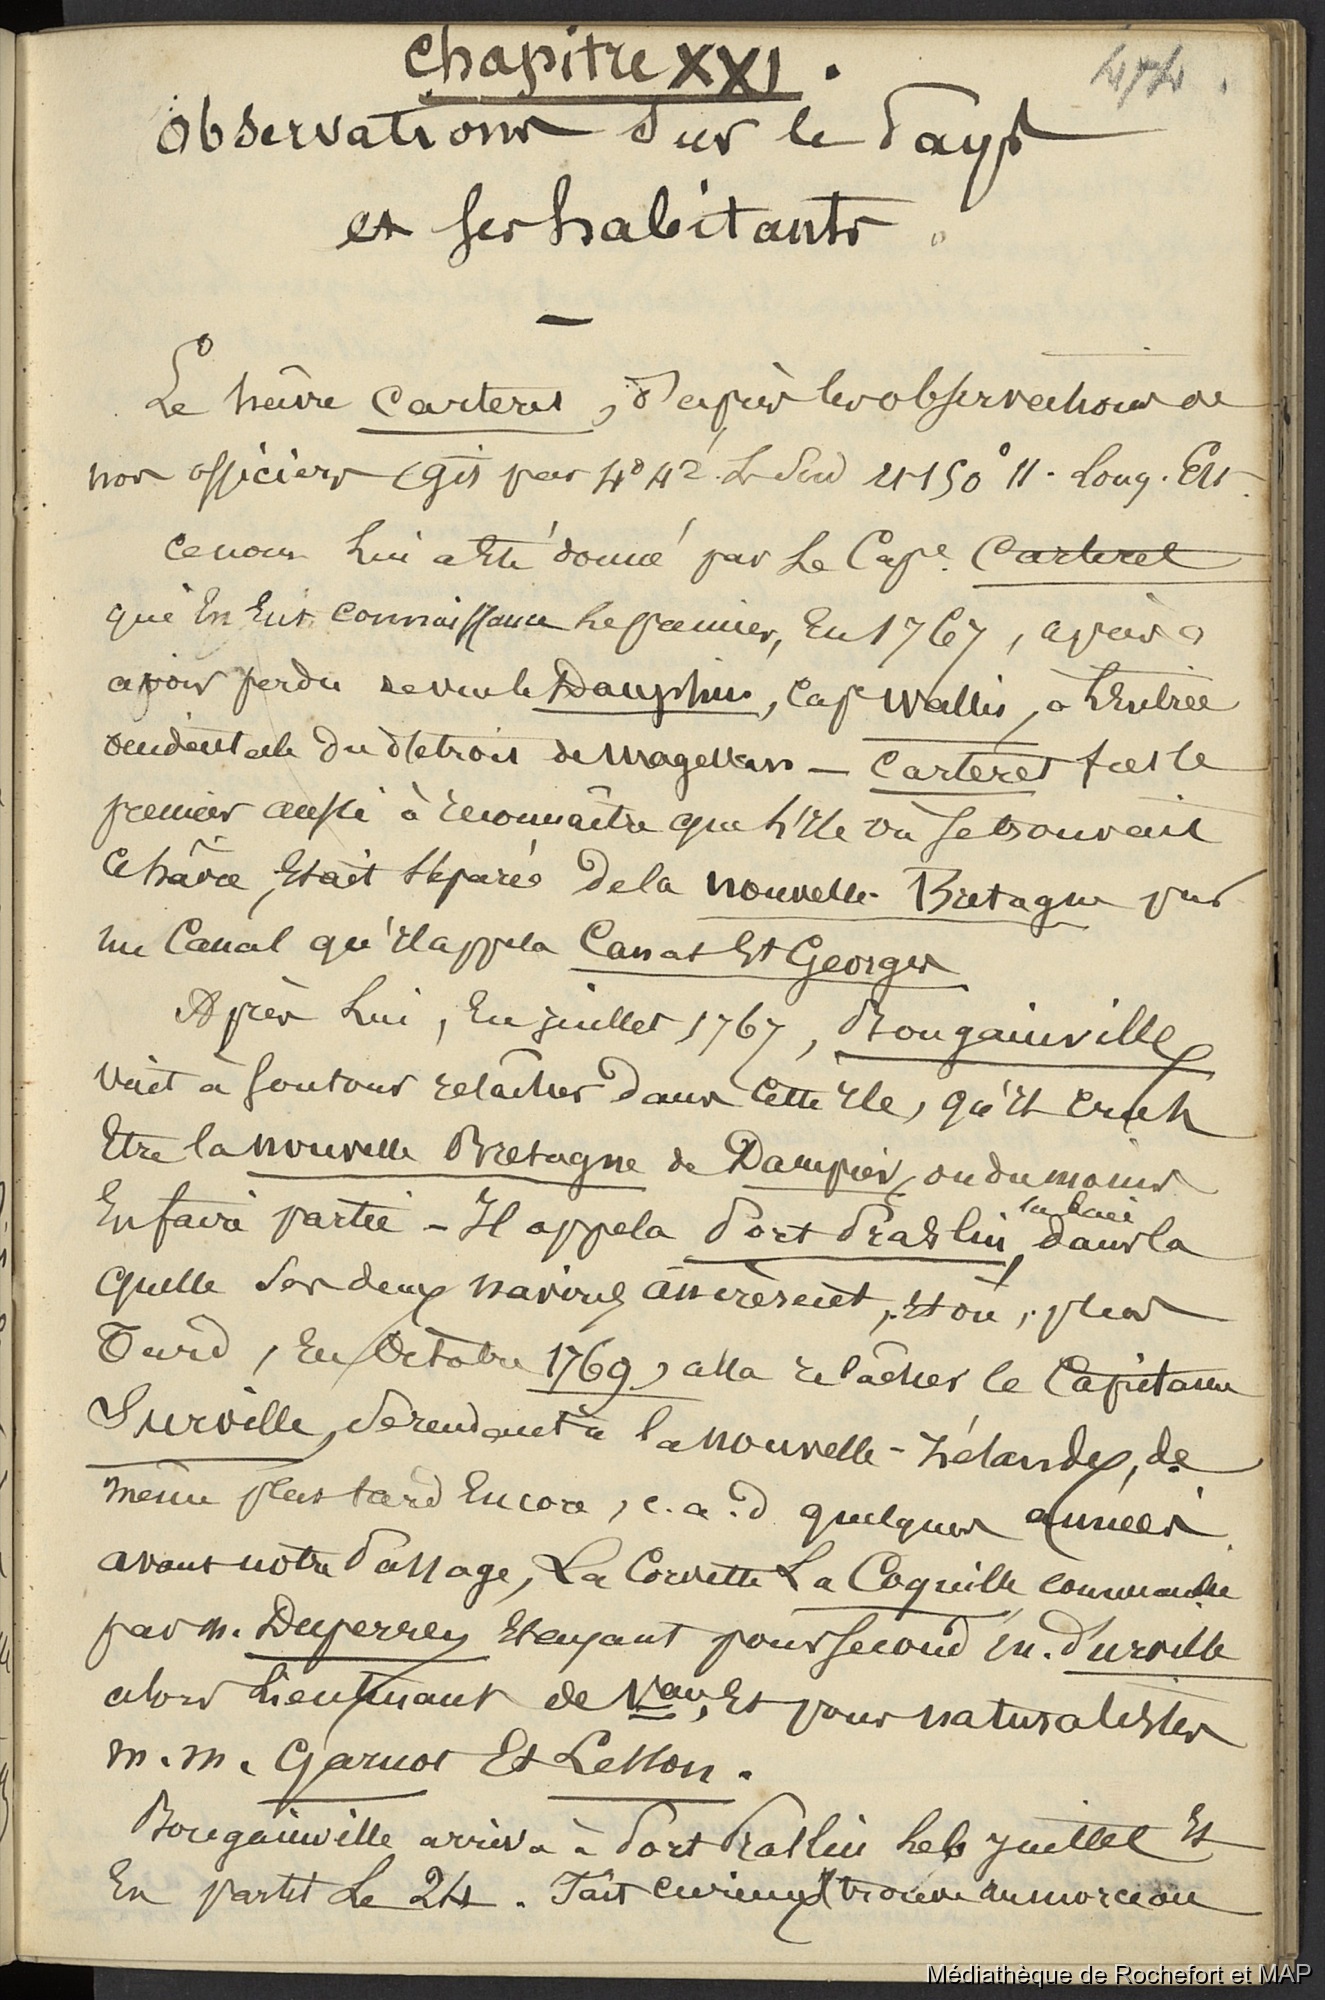 474.
Chapitre XXI.
Observations sur le Pays
et ses habitants.
—
Le hâvre Carteret, d'après les observations de
nos officiers gis par 4° 42' L. Sud et 150° 11. Long. Est.
Ce nom lui a été donné par Le Cape. Carteret
qui en eut connaissance le premier, en 1767, après
avoir perdu de vue le Dauphin, Cape Wallis, à l'entrée
occidentale du détroit de Magellan — Carteret fut le
premier aussi à reconnaître que l'île où se trouvait
ce hâvre, était séparée de la nouvelle Bretagne par
un Canal qu'il appela Canal St Georges
Après lui, en juillet 1767, Bougainville
vint à son tour relâcher dans cette île, qu'il crut
être la nouvelle Bretagne de Dampier, ou du moins
en faire partie — Il appela Port Praslin, la baie dans la
quelle ses deux navires ancrèrent, et où, plus
tard, en Octobre 1769, alla relâcher le Capitaine
Surville, se rendant à la nouvelle-Zélande, de
même plus tard encore, c.a.d quelques années
avant notre passage, La Corvette La Coquille commandée
par M. Duperrey et ayant pour second M. d'urville
alors lieutenant de Vau, et pour naturalistes
M.M. Garnot et Lesson.
Bougainville arriva à Port Praslin le 6 juillet et
en partit le 24. Fait curieux, trouva un morceau
Médiathèque de Rochefort et MAP